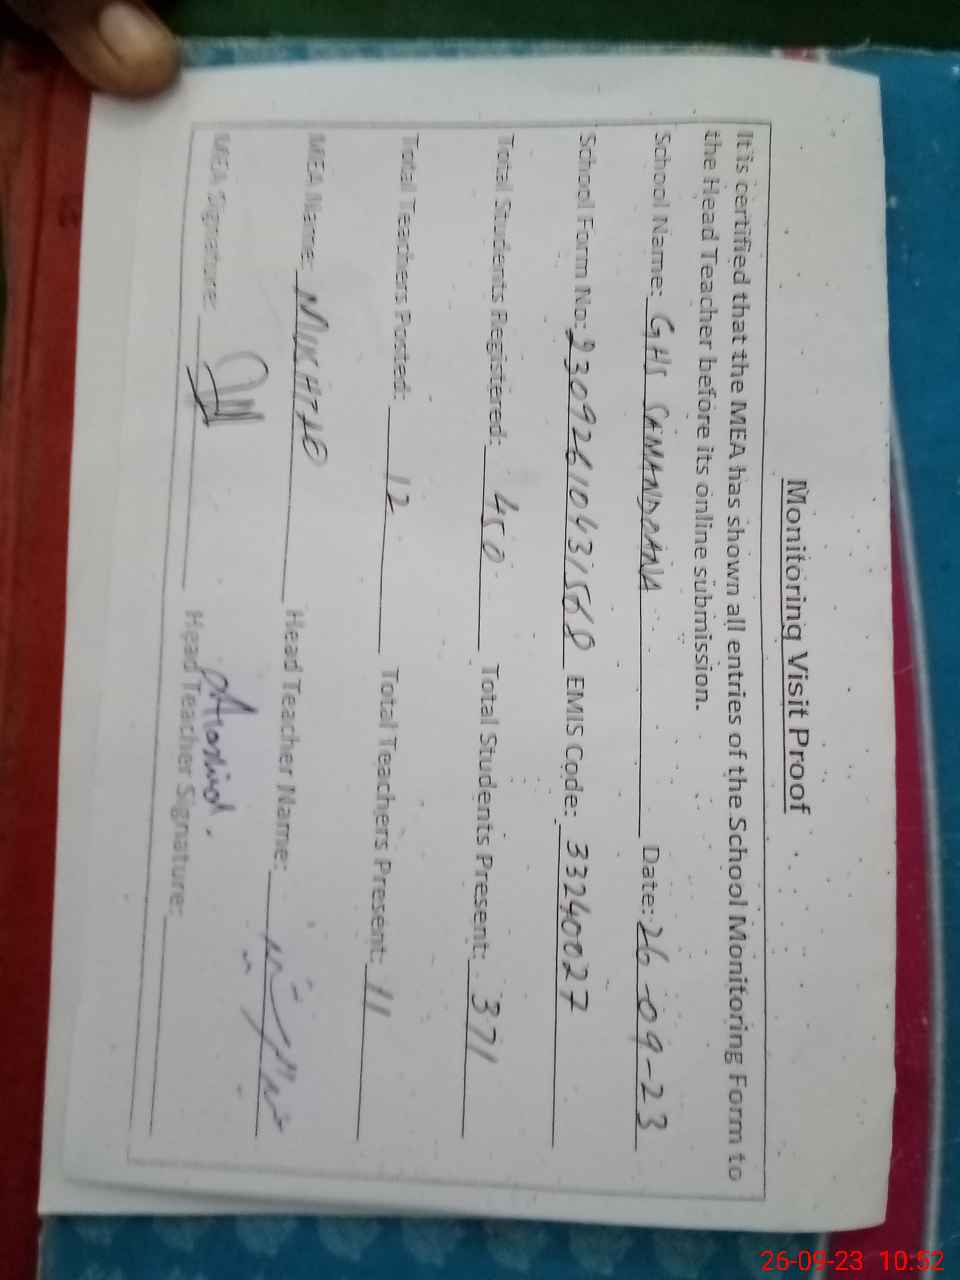 Monitoring Visit Proof
It is certified that the MEA has shown all entries of the School Monitoring Form to
the Head Teacher before its online submission.
School Name: GHS SAMANDOANA Date: 26-09-23
School Form No: 230926104315568 EMIS Code: 33240027
Total Students Registered: 450 Total Students Present: 371
Total Teachers Posted: 12 Total Teachers Present: 11
MEA Name: Head Teacher Name:
MEA Signature: Head Teacher Signature:
26-09-23 10:52